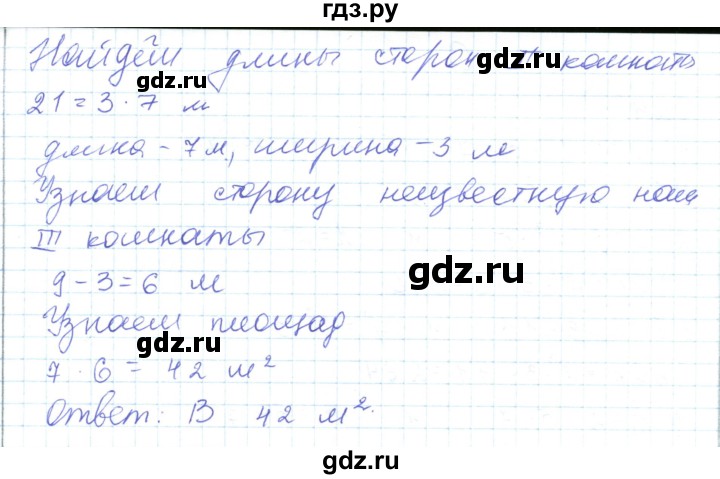 гдз.ру
Найдём длины сторон комнаты
21 = 3 · 7 м
длика - 7 м, ширина - 3 м
Узнаем сторону неизвестную нам
III комнаты
gdz.ru
9 - 3 = 6 м
Узнаем площад
gdz.ru
7 · 6 = 42 м²
Ответ: В 42 м².
gdz.ru